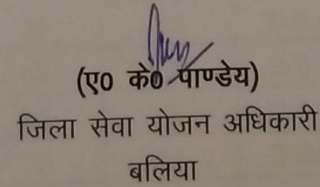 (ए० के० पाण्डेय)
जिला सेवा योजन अधिकारी
बलिया